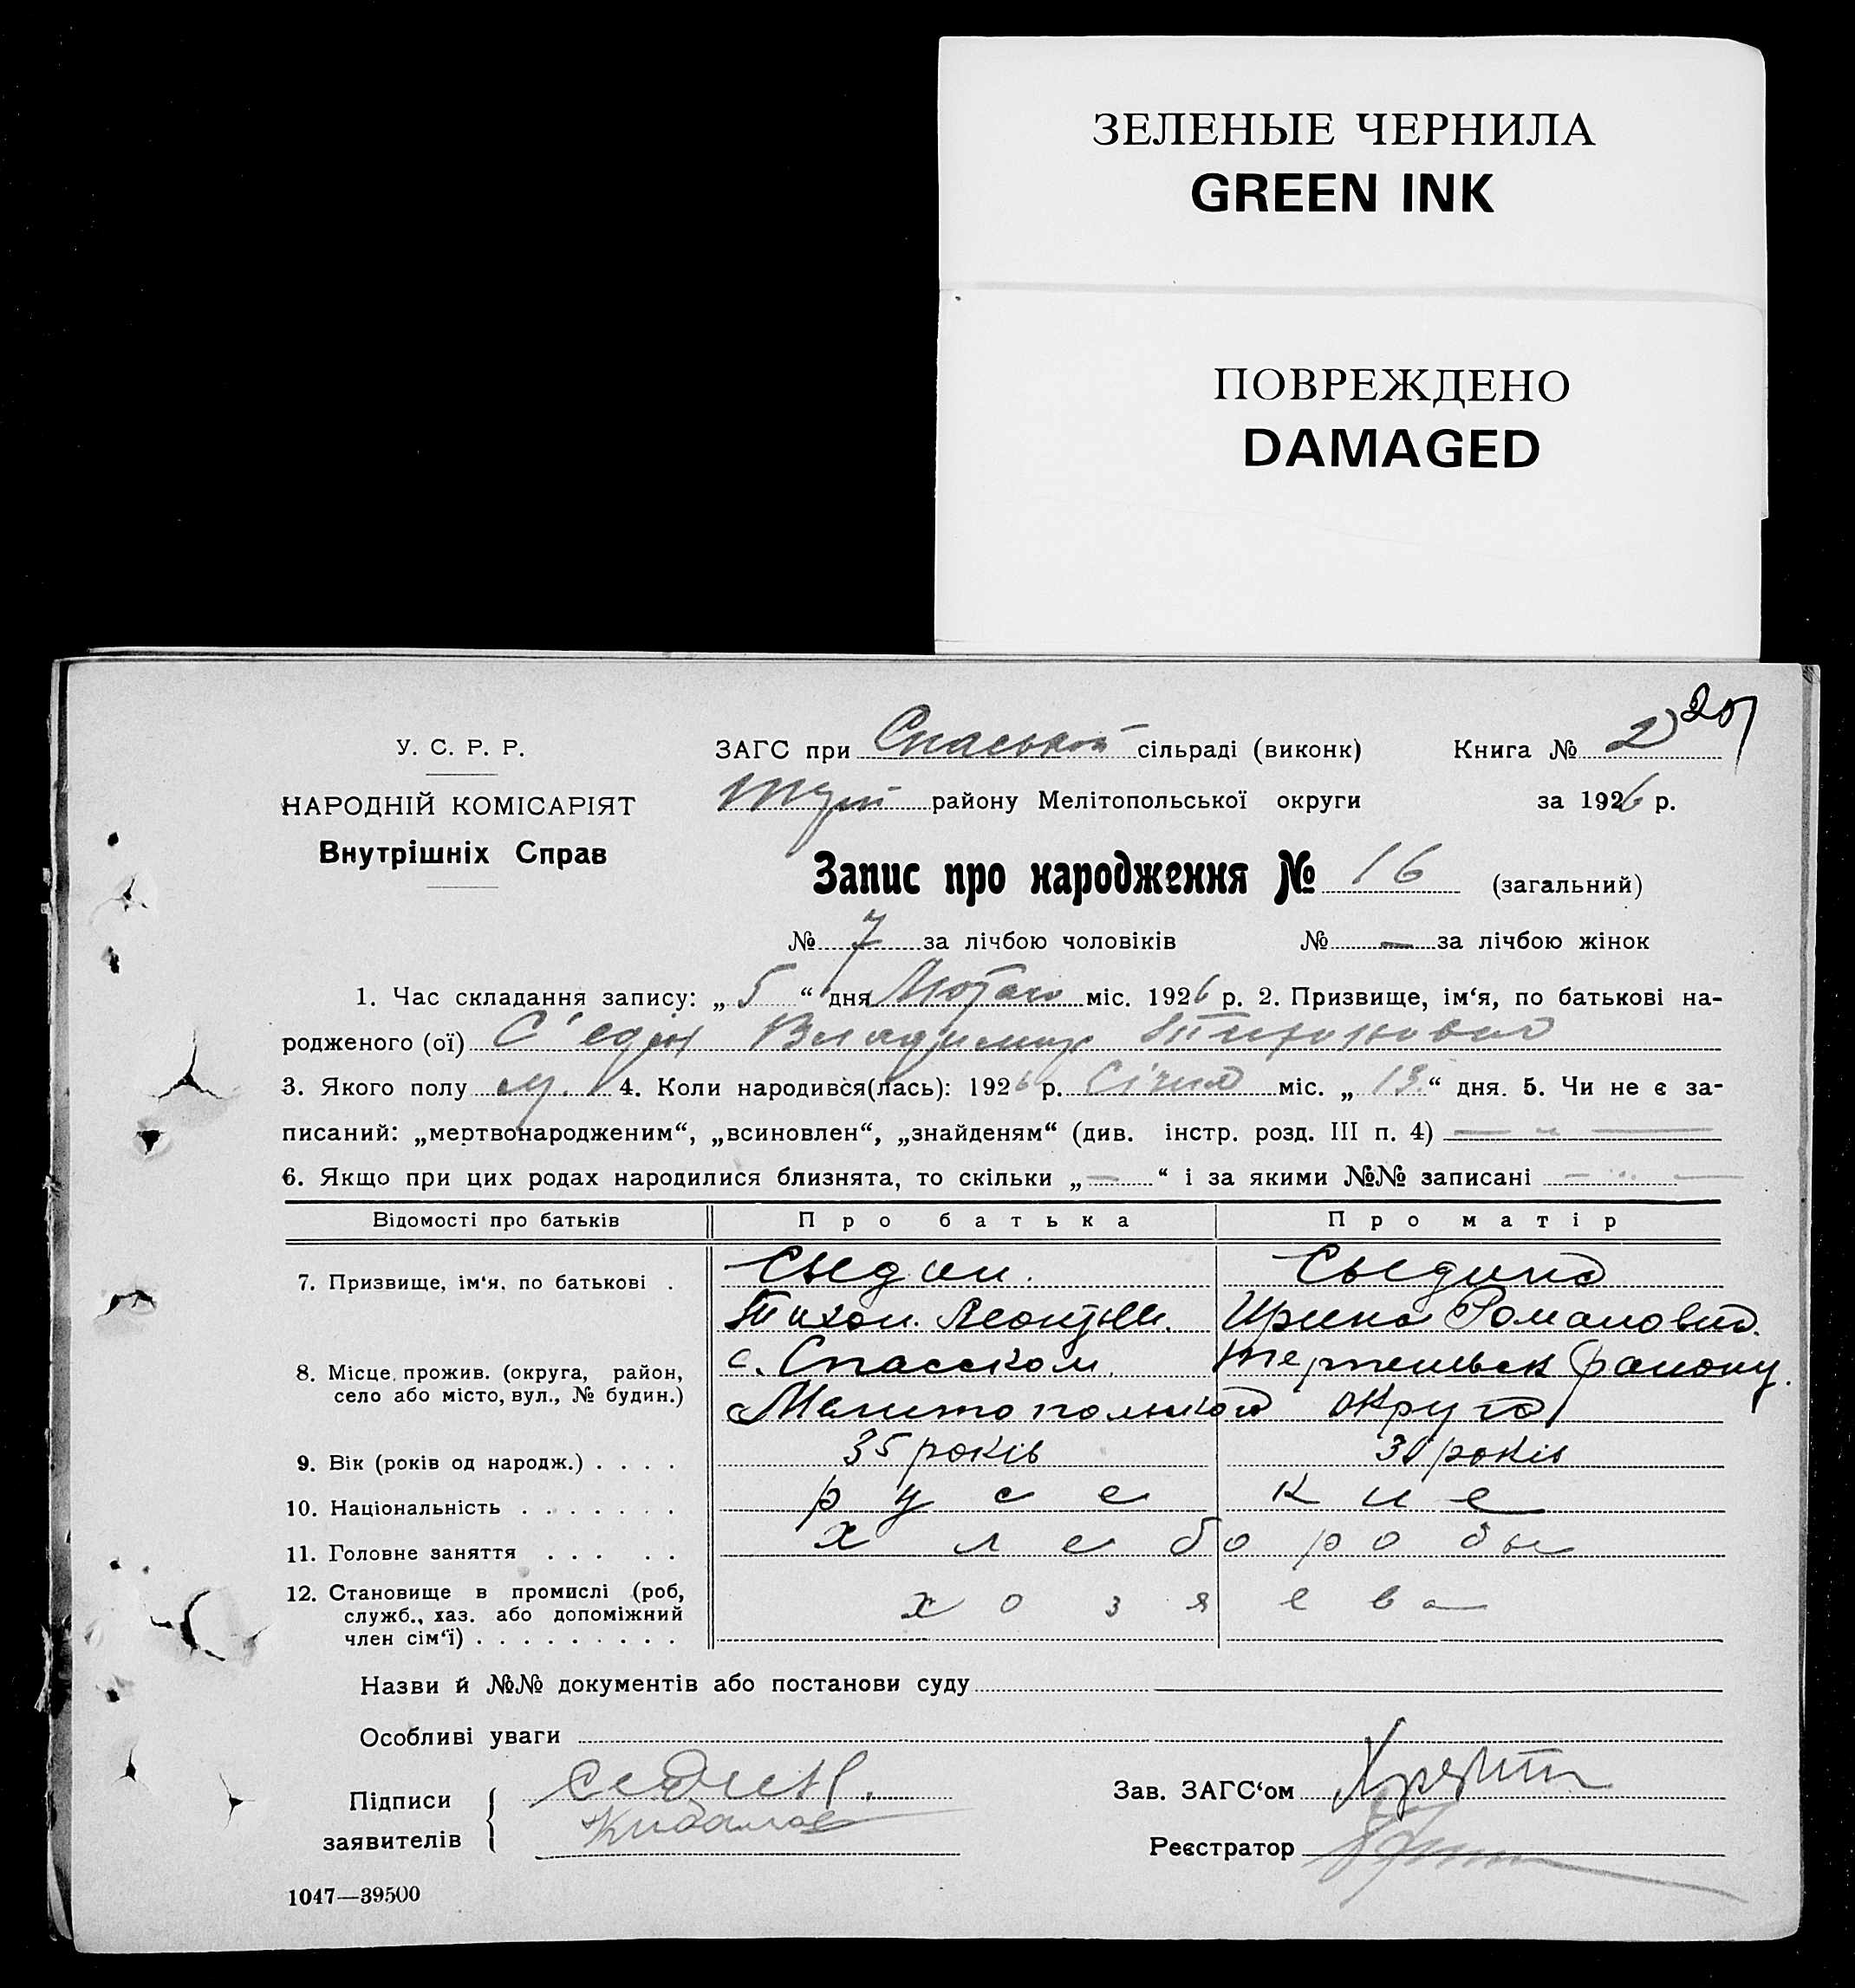 ЗЕЛЕНЫЕ ЧЕРНИЛА
GREEN INK
ПОВРЕЖДЕНО
DAMAGED
У. С. Р. Р.
НАРОДНІЙ КОМІСАРІЯТ
Внутрішніх Справ
ЗАГС при Спаської сільраді (виконк) Книга № 2
району Мелітопольської округи за 1926 р.
Запис про народження № 16 (загальний)
№ 7 за лічбою чоловіків № — за лічбою жінок
1. Час складання запису: „ 5 “ дня Лютого міс. 1926 р. 2. Призвище, ім‘я, по батькові на-
родженого (ої) С'едін Владимир Тихонович
3. Якого полу м. 4. Коли народився(лась): 1926 р. Січня міс. „ 13 “ дня. 5. Чи не є за-
писаний: „мертвонародженим“, „всиновлен“, „знайденям“ (див. інстр. розд. III п. 4) — „ —
6. Якщо при цих родах народилися близнята, то скільки „ — “ і за якими №№ записані — „ —
Відомості про батьків Про батька Про матір
7. Призвище, ім‘я, по батькові . Сьедин. Сьедина
Тихон. Леонтьев. Ирина Романовна.
8. Місце прожив. (округа, район,
село або місто, вул., № будин.)
с. Спасском. району.
Мелитопольской округа
9. Вік (років од народж.) . . . . 35 років 30 років
10. Національність . . . . . . . русские
11. Головне заняття . . . . . хлеборобы
12. Становище в промислі (роб,
служб., хаз. або допоміжний
член сім‘ї) . . . . . . . . .
хозяева
Назви й №№ документів або постанови суду
Особливі уваги
Підписи
заявителів
Седин.
Зав. ЗАГС‘ом
Реєстратор
1047—39500